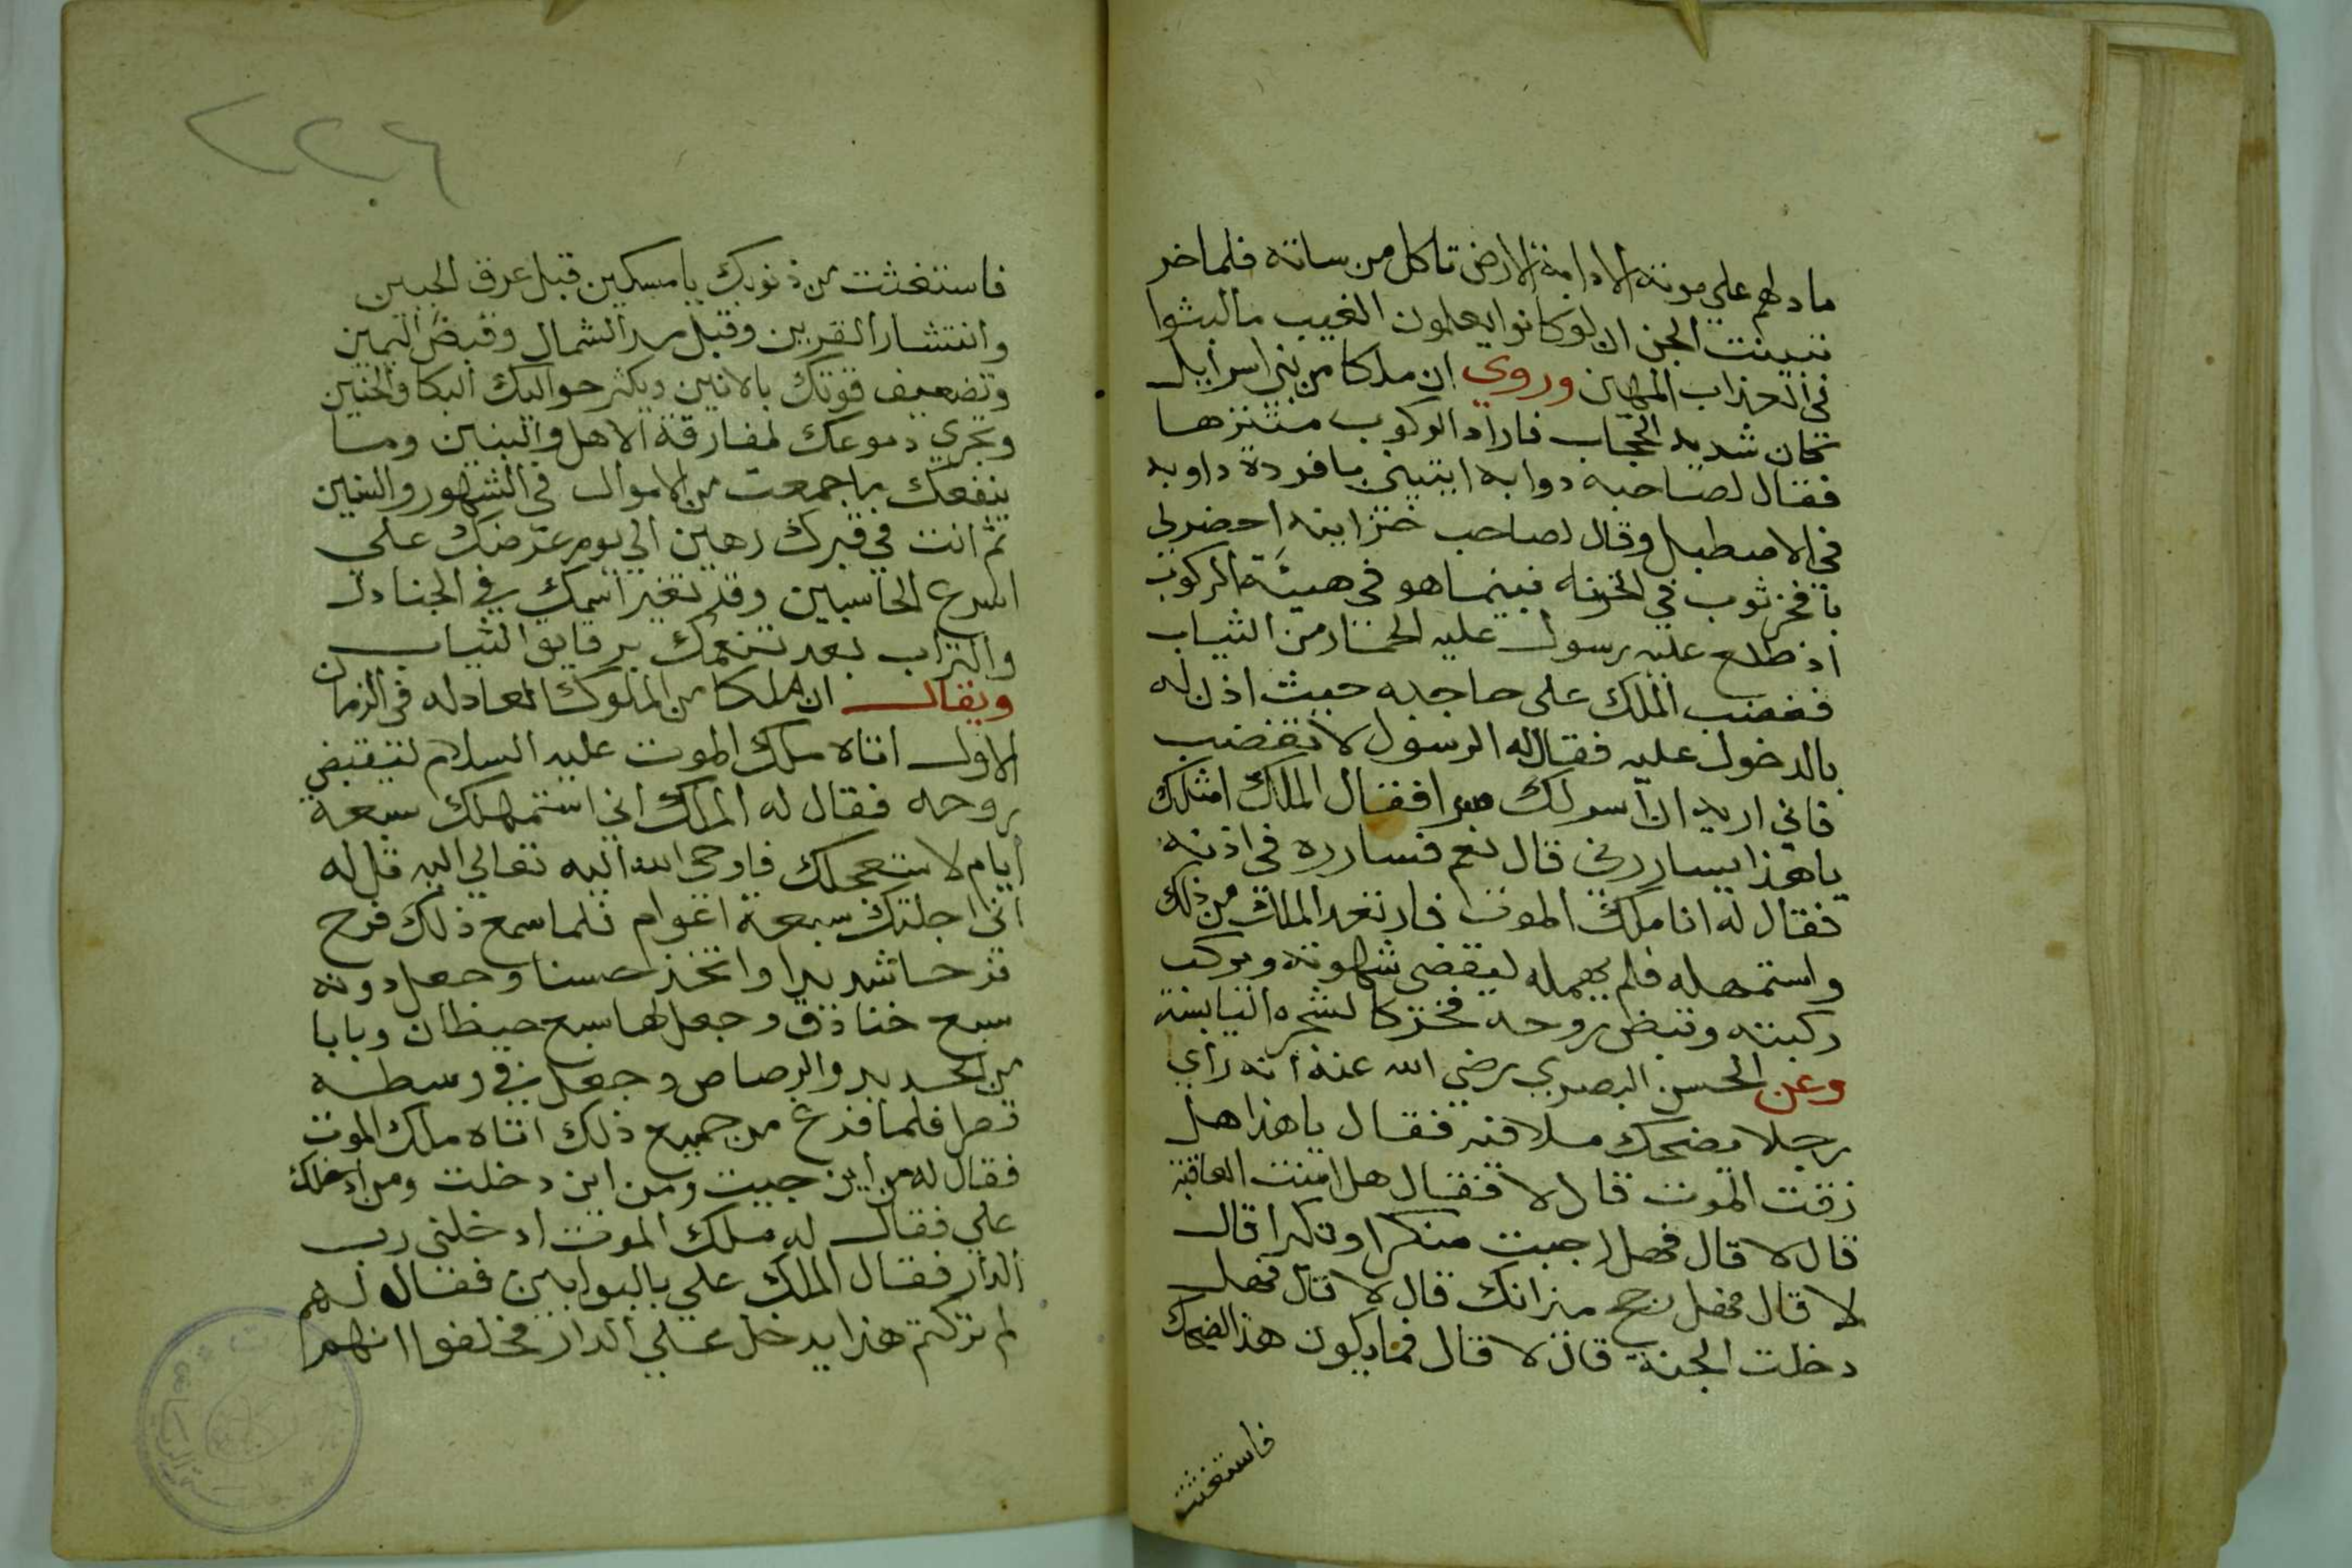 ما دلهم على موته الا دابة الارض تاكل من ساته فلما خر
تبينت الجن ان لوكانوا يعلمون الغيب ما لبثوا
في العذاب المهين وروي ان ملكا من بني اسراييل
كان شديد الحجاب فاراد الركوب متنزها
فقال لصاحبه دوابه ايتيني بافرده داوبه
في الاصطبل وقال لصاحب خزاينه احضر لي
بافخر ثوب في الخزنه فبينما هو في هيئة الركوب
اذ طلع عليه رسول عليه الخنار من الثياب
فغضب الملك على حاجبه حيث اذن له
بالدخول عليه فقال له الرسول لا تغضب
فاني اريد ان اسر لك سرا فقال الملك امثلك
ياهذا يساررني قال نعم فسارره في اذنيه
فقال له انا ملك الموت فارتعد الملك من ذلك
واستمهله فلم يمهله ليقضي شهوته ويركب
ركبته وقبض روحه فخر كالشجره اليابسة
وعن الحسن البصري رضي الله عنه انه راي
رجلا يضحك ملا فيه فقال ياهذا هل
زقت الموت قال لا فقال هل امنت العاقبة
قال لا قال فهل اجبت منكرا ونكيرا قال
لا قال فهل رجح ميزانك قال لا قال فهل
دخلت الجنة قال لا قال فما يكون هذا الضحك
فاستغثت
٢٢٦
فاستغثت من ذنوبك يا مسكين قبل عرق الجبين
وانتشار القربين وقبل مد الشمال وقبض اليمين
وتضعيف قوتك بالانين ويكثر حواليك البكا والحنين
وتجري دموعك لمفارقة الاهل والبنين وما
ينفعك ما جمعت من الاموال في الشهور والسنين
ثم انت في قبرك رهين الي يوم عرضك علي
اسرع الحاسبين وقد تغير اسمك في الجنادل
والتراب بعد تنعمك برقايق الثياب
ويقال ان ملكا من الملوك العادله في الزمان
الاول اتاه ملك الموت عليه السلام ليقبض
روحه فقال له الملك اني استمهلك سبعة
ايام لا ستعجلك فاوحي الله اليه تعالي اليه قل له
اني اجلتك سبعة اعوام فلما سمع ذلك فرح
فرحا شديدا واتخذ حصنا وجعل دونه
سبع خنادق وجعل لها سبع حيطان وبابا
من الحديد والرصاص وجعل في وسطه
قصرا فلما فرغ من جميع ذلك اتاه ملك الموت
فقال له من اين جيت ومن اين دخلت ومن ادخلك
علي فقال له ملك الموت ادخلني رب
الدار فقال الملك علي بالبوابين فقال لهم
لم تركتم هذا يدخل علي الدار فحلفوا انهم